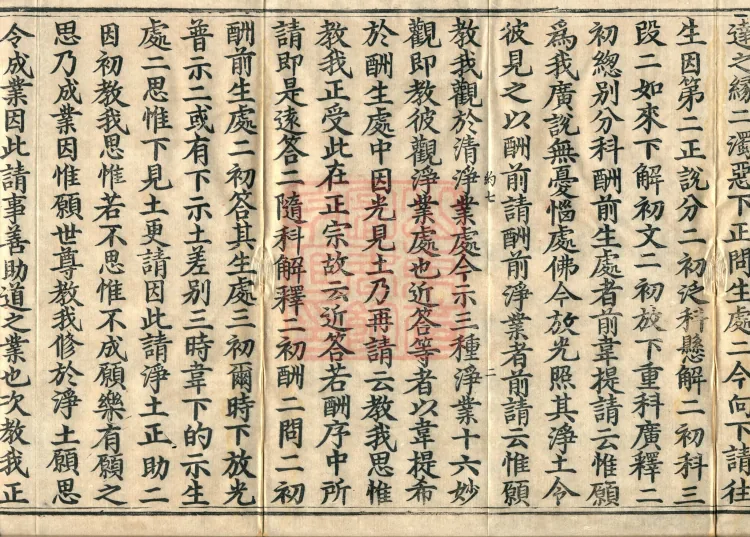 達之緣二濁惡下正問生處二今向下請往
生因第二正說分二初從科懸解二初科三
段二如來下解初文二初放下重科廣釋二
初總別分科酬前生處者前韋提請云惟願
爲我廣說無憂惱處佛令放光照其淨土令
彼見之以酬前請酬前淨業者前請云惟願
約七
二
教我觀於清淨業處今示三種淨業十六妙
觀即教彼觀淨業處也近答等者以韋提希
於酬生處中因光見土乃再請云教我思惟
教我正受此在正宗故云近答若酬序中所
請即是遠答二隨科解釋二初酬二問二初
酬前生處二初答其生處三初爾時下放光
普示二或有下示土差別三時韋下的示生
處二思惟下見土更請因此請淨土正助二
因初教我思惟若不思惟不成願樂有願之
思乃成業因惟願世尊教我修於淨土願思
令成業因此請事善助道之業也次教我正